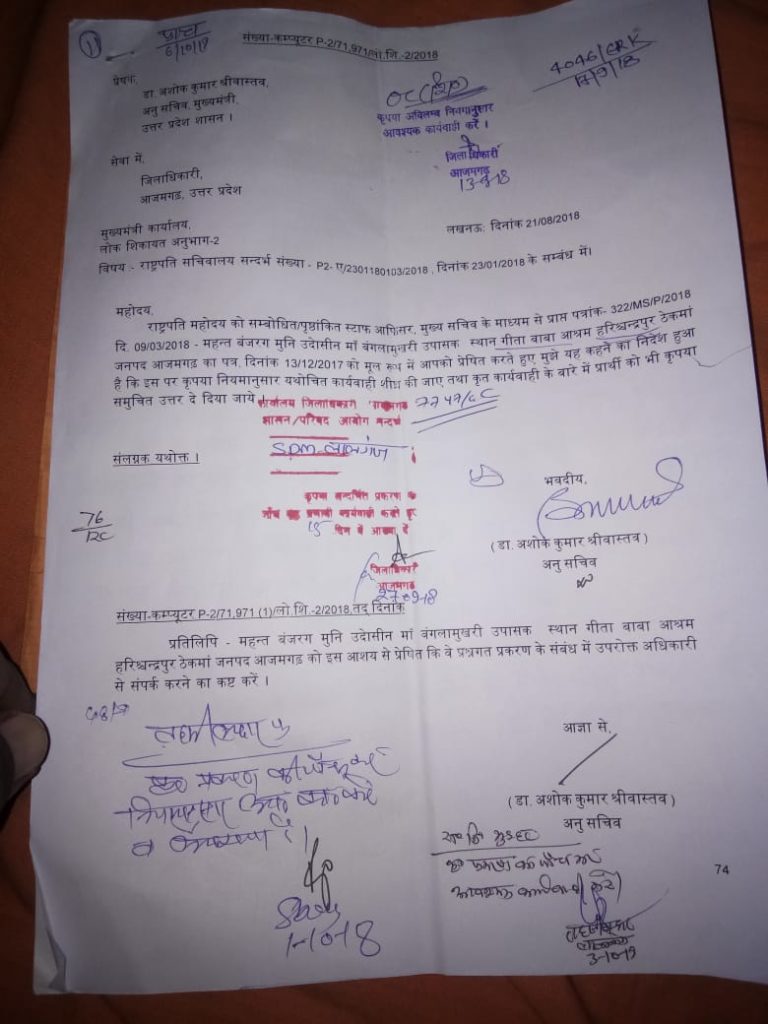 1
प्राप्त
6/10/18
संख्या-कम्प्यूटर P-2/71,971/लो.शि.-2/2018
4046/CRK
14/9/18
प्रेषक,
डा. अशोक कुमार श्रीवास्तव,
अनु सचिव, मुख्यमंत्री,
उत्तर प्रदेश शासन ।
कृपया अविलम्ब नियमानुसार
आवश्यक कार्यवाही करें ।
जिलाधिकारी
आजमगढ़
13-9-18
सेवा में,
जिलाधिकारी,
आजमगढ़, उत्तर प्रदेश
मुख्यमंत्री कार्यालय,
लोक शिकायत अनुभाग-2
लखनऊ: दिनांक 21/08/2018
विषय:- राष्ट्रपति सचिवालय सन्दर्भ संख्या - P2- ए/2301180103/2018 , दिनांक 23/01/2018 के सम्बंध में।
महोदय,
राष्ट्रपति महोदय को सम्बोधित/पृष्ठांकित स्टाफ आफिसर, मुख्य सचिव के माध्यम से प्राप्त पत्रांक- 322/MS/P/2018
दि. 09/03/2018 - महन्त बंजरग मुनि उदेासीन माँ बंगलामुखरी उपासक स्थान गीता बाबा आश्रम हरिश्चन्द्रपुर ठेकमां
जनपद आजमगढ़ का पत्र, दिनांक 13/12/2017 को मूल रूप में आपको प्रेषित करते हुए मुझे यह कहने का निदेश हुआ
है कि इस पर कृपया नियमानुसार यथोचित कार्यवाही शीघ्र की जाए तथा कृत कार्यवाही के बारे में प्रार्थी को भी कृपया
समुचित उत्तर दे दिया जाये ।
कार्यालय जिलाधिकारी आजमगढ़
शासन/परिषद आयोग सन्दर्भ
SDM-लालगंज
संलग्रक यथोक्त ।
कृपया सन्दर्भित प्रकरण की
जाँच कर प्रभावी कार्यवाही करते हुए
15 दिन में आख्या दें
जिलाधिकारी
आजमगढ़
27-09-18
76
भवदीय,
(डा. अशोक कुमार श्रीवास्तव)
अनु सचिव
संख्या-कम्प्यूटर P-2/71,971 (1)/लो.शि.-2/2018,तद् दिनांक
प्रतिलिपि - महन्त बंजरग मुनि उदेासीन माँ बंगलामुखरी उपासक स्थान गीता बाबा आश्रम
हरिश्चन्द्रपुर ठेकमां जनपद आजमगढ़ को इस आशय से प्रेषित कि वे प्रश्नगत प्रकरण के संबंध में उपरोक्त अधिकारी
से संपर्क करने का कष्ट करें ।
आज्ञा से,
(डा. अशोक कुमार श्रीवास्तव)
अनु सचिव
1-10-18
74
3-10-18